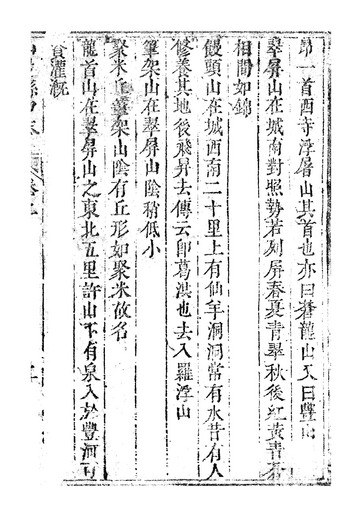 昂一首酉寺浮屠山其首也亦曰蒼龍山又曰豐山
翠屏山在城南對照勢若列屏春夏青翠秋後紅黃青蒼
相間如錦
饅頭山在城西南二十里上有仙羊洞洞常有水昔有人
修養其地後飛昇去傳云卽葛洪也去入羅浮山
筆架山在翠屏山陰稍低小
聚米山筆架山陰有丘形如聚米故名
龍首山在翠屏山之東北五里許山下有泉入於豐河可
資灌溉